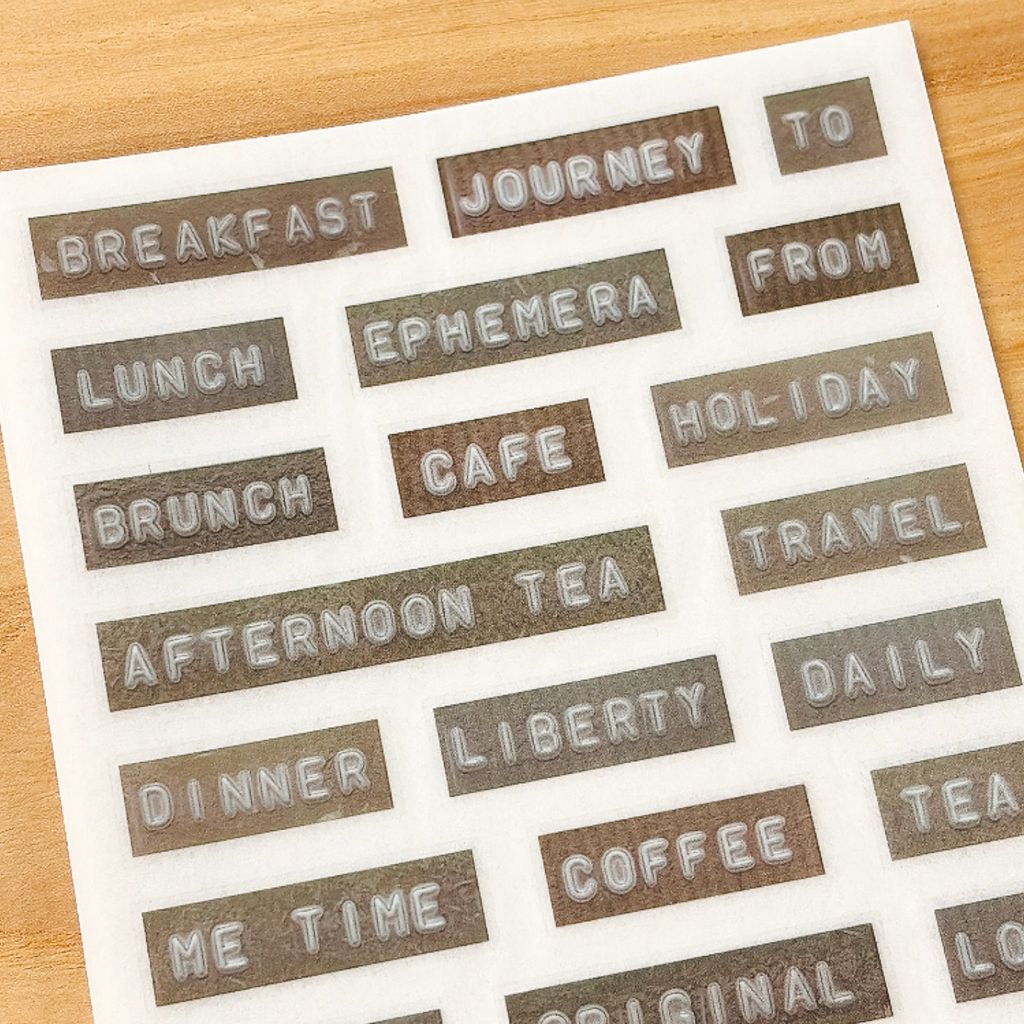 BREAKFAST
JOURNEY
TO
LUNCH
EPHEMERA
FROM
BRUNCH
CAFE
HOLIDAY
AFTERNOON TEA
TRAVEL
DINNER
LIBERTY
DAILY
ME TIME
COFFEE
TEA
ORIGINAL